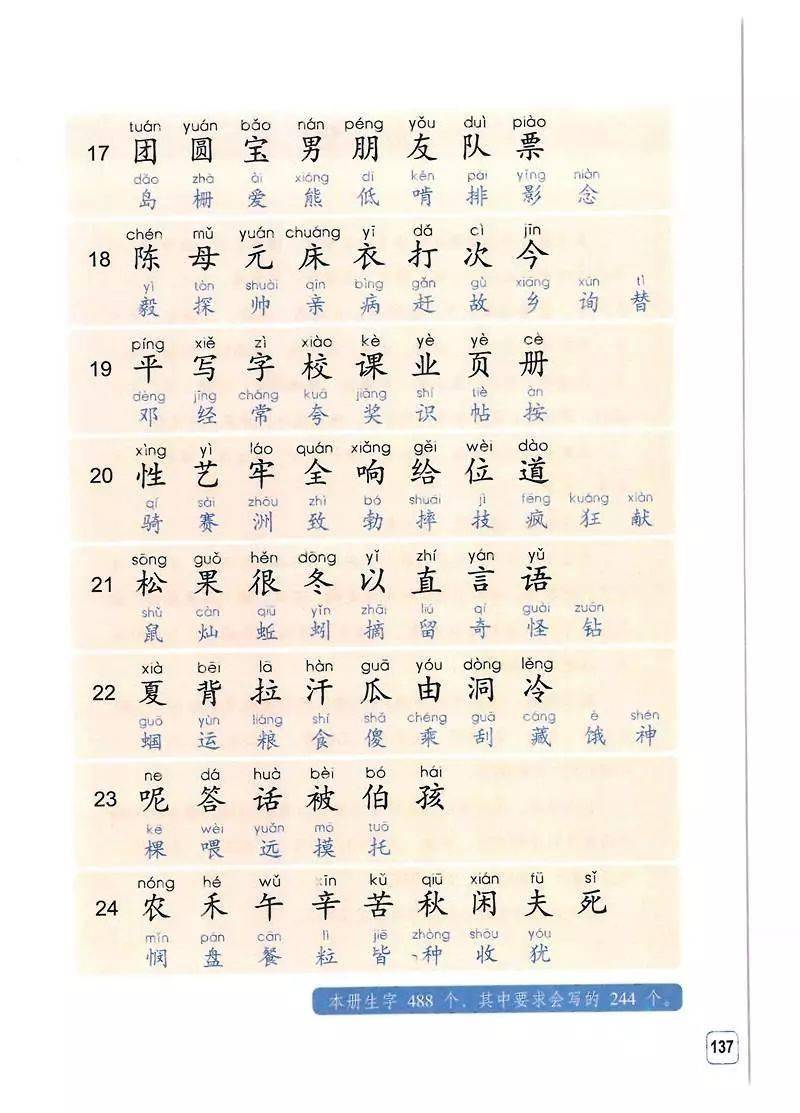 tuán yuán bǎo nán péng yǒu duì piào
17 团 圆 宝 男 朋 友 队 票
dǎo zhà ài xióng dī kěn pái yǐng niàn
岛 栅 爱 熊 低 啃 排 影 念
chén mǔ yuán chuáng yī dǎ cì jīn
18 陈 母 元 床 衣 打 次 今
yì tàn shuài qīn bìng gǎn gù xiāng xún tì
毅 探 帅 亲 病 赶 故 乡 询 替
píng xiě zì xiào kè yè yè cè
19 平 写 字 校 课 业 页 册
dèng jīng cháng kuā jiǎng shí tiě àn
邓 经 常 夸 奖 识 帖 按
xìng yì láo quán xiǎng gěi wèi dào
20 性 艺 牢 全 响 给 位 道
qí sài zhōu zhì bó shuāi jì fēng kuáng xiàn
骑 赛 洲 致 勃 摔 技 疯 狂 献
sōng guǒ hěn dōng yǐ zhí yán yǔ
21 松 果 很 冬 以 直 言 语
shǔ càn qiū yǐn zhāi liú qí guài zuān
鼠 灿 蚯 蚓 摘 留 奇 怪 钻
xià bēi lā hàn guā yóu dòng lěng
22 夏 背 拉 汗 瓜 由 洞 冷
guō yùn liáng shí shǎ chéng guā cáng è shén
蝈 运 粮 食 傻 乘 刮 藏 饿 神
ne dá huà bèi bó hái
23 呢 答 话 被 伯 孩
kē wèi yuǎn mō tuō
棵 喂 远 摸 托
nóng hé wǔ xīn kǔ qiū xián fū sǐ
24 农 禾 午 辛 苦 秋 闲 夫 死
mǐn pán cān lì jiē zhòng shōu yóu
悯 盘 餐 粒 皆 种 收 犹
本册生字 488 个，其中要求会写的 244 个。
137